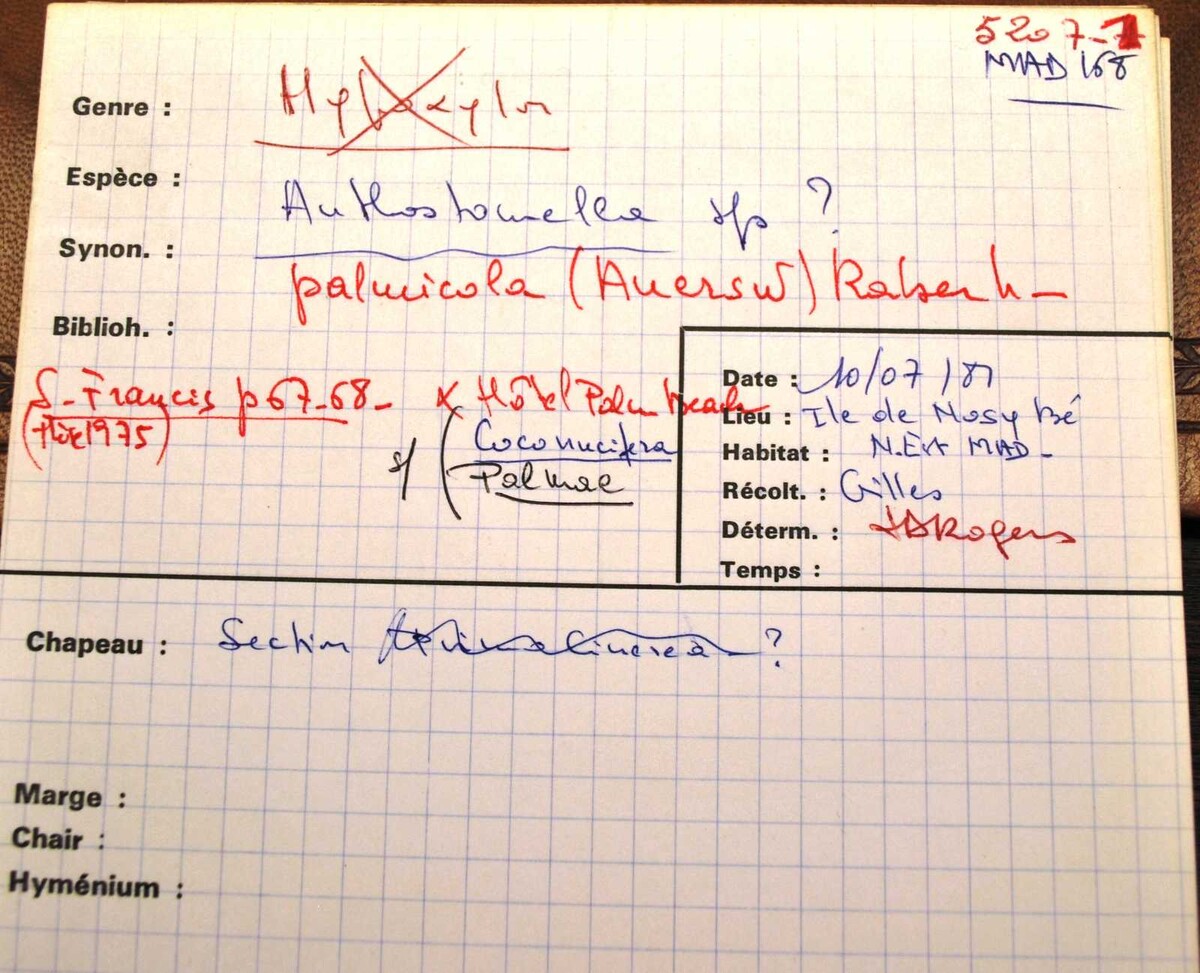 5207-1
MAD 168
Genre : Hypoxylon
Espèce :
Anthostomella sp ?
Synon. :
palmicola (Auersw) Rabenh-
Biblioh. :
S-Francis p 67-68-
(thèse 1975)
x Hôtel Palm beach
s/ (Coco nucifera
Palmae
Date : 10/07/81
Lieu : Ile de Nosy Bé
Habitat : N. Est MAD-
Récolt. : Gilles
Déterm. : JDRogers
Temps :
Chapeau : Section ?
Marge :
Chair :
Hyménium :